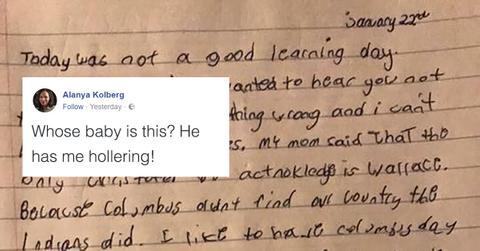 January 22nd
Today was not a good learning day.
wanted to hear you not
Alanya Kolberg
Follow · Yesterday ·
thing wrong and i can't
Whose baby is this? He
has me hollering!
My mom said that the
only actnokledge is Wallace.
Because Columbus didnt find our country the
Indians did. I like to have columbus day